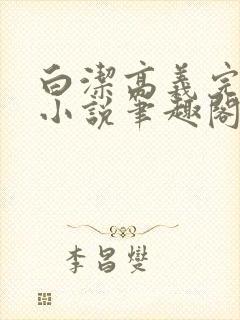 白潔高義完
小說筆趣閣
李昌燮